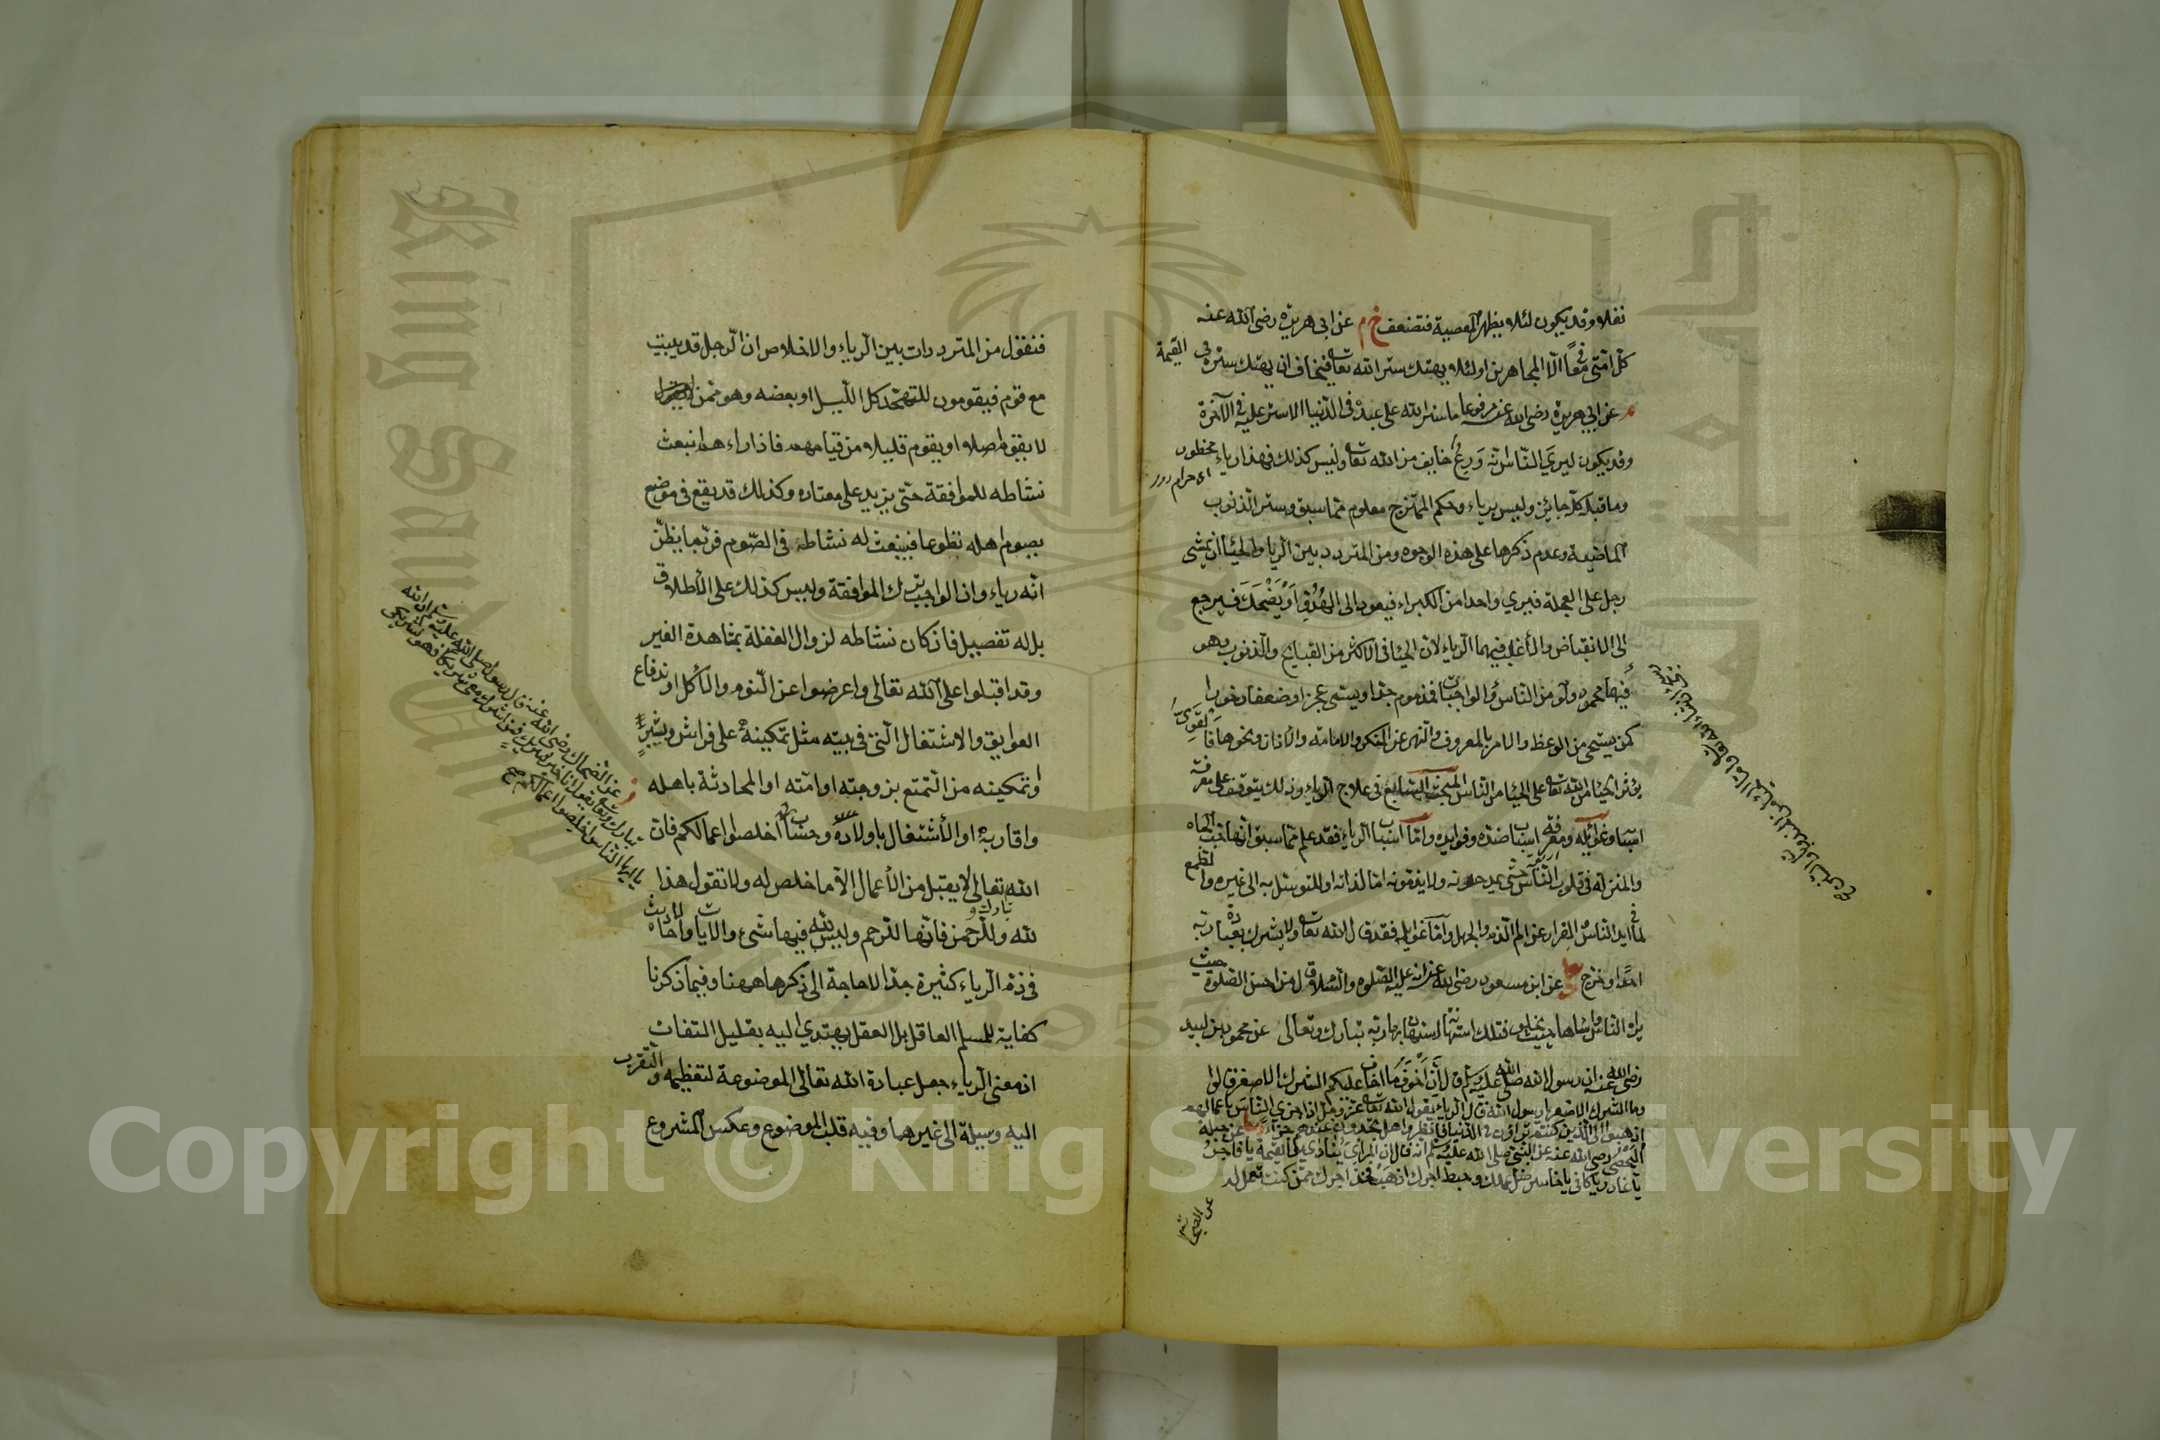 نفلا وقد يكون لئلا يظهر المعصية فتضعف خ م عن ابي هريرة رضى الله عنه
كل امتى معافا الا المجاهرين او لئلا يهتك ستر الله تعا فيخاف ان يهتك ستره فى القيمة
م عن ابي هريرة رضى الله عنه مرفوعا ما ستر الله على عبد فى الدنيا الا ستر عليه فى الآخرة
وقد يكون ليري الناس انه ورع خايف من الله تعا وليس كذلك فهذا رياء محظور
اى حرام
وما قبله كل جائز وليس برياء وحكم الممتزج معلوم مما سبق وستر الذنوب
الماضية وعدم ذكرها على هذه الوجوه ومن المتردد بين الريا والحيا ان يمشى
رجل على العجلة فيري واحدا من الكبراء فيعود الى الهدو او يضحك فيرجع
الى الانقباض والأغلب فيهما الرياء لان الحيا فى الاكثر من القبايح والذنوب وهو
فيها محمود ولو من الناس والواجبات فمذموم جدا ويسمى عجزا وضعفا وخورا
كمن يستحى من الوعظ والامر بالمعروف والنهى عن المنكر والامامه والاذان ونحوها فالقوي
يؤثر الحيا من الله تعا على الحيا من الناس المبحث السابع فى علاج الرياء وذلك يتوقف على معرفة
اسبابه وغوائله ومعرفة اسباب ضده وفوايده واما اسباب الرياء فقد علم مما سبق انها حب الجاه
والمنزلة فى قلوب الناس حتى يمدحونه ولا يذمونه اما لذاته او للتوسل به الى غيره والطمع
لما فى ايد الناس والفرار عن الم الذم والجهل واما غوايله فقد قال الله تعا ولا يشرك بعبادة ربه
احدا وخرج عن ابن مسعود رضى الله عنه انه عليه الصلوة والسلام قال من احسن الصلوة حيث
يراه الناس واساها حيث يخلو فتلك استهانة استهان بها ربه تبارك وتعالى عن محمود بن لبيد
رضى الله عنه ان رسول الله صلى الله عليه وسلم قال ان اخوف ما اخاف عليكم الشرك الاصغر قالوا
وما الشرك الاصغر يا رسول الله قال الرياء يقول الله تعا عز وجل اذا جزى الناس باعمالهم
اذهبوا الى الذين كنتم تراؤن فى الدنيا فانظروا هل تجدون عندهم جزاء عن جبلة
اليحصبى رضى الله عنه عن النبى صلى الله عليه وسلم انه قال ان المرائى ينادى يوم القيمة يا فاجر
يا غادر يا كافر يا خاسر ضل عملك وحبط اجرك اذهب فخذ اجرك ممن كنت تعمل له
عن الضحاك
فنقول من المترددات بين الرياء والاخلاص ان الرجل قد يبيت
مع قوم فيقومون للتهجد كل الليل او بعضه وهو ممن
لا يقوم اصلا او يقوم قليلا من قيامهم فاذا راءهم انبعث
نشاطه للموافقة حتى يزيد على معتاده وكذلك قد يقع فى موضع
يصوم اهله تطوعا فينبعث له نشاطه فى الصوم فربما يظن
انه رياء وان الواجب ترك الموافقة وليس كذلك على الاطلاق
بل له تفصيل فان كان نشاطه لزوال الغفلة بمشاهدة الغير
وقد اقبلوا على الله تعالى واعرضوا عن النوم والأكل او اندفاع
العوايق والاشتغال التى فى بيته مثل تمكينه على فراش وثير
او تمكينه من التمتع بزوجته او امته او المحادثة باهله
واقاربه او الأشتغال باولاده وحسابه اخلصوا اعمالكم فان
الله تعالى لا يقبل من الأعمال الا ما خلص له ولا تقول هذا
تبارك و
لله وللرحم فانها للرحم وليس لله فيها شئ والآيات والاحاديث
فى ذم الرياء كثيرة جدا لا حاجة الى ذكرها ههنا وفيما ذكرنا
كفاية للمسلم العاقل بل العقل يهتدي اليه بقليل التفات
اذ معنى الرياء جعل عبادة الله تعالى الموضوعة لتعظيمه والتقرب
اليه وسيلة الى غيرهما وفيه قلب الموضوع وعكس المشروع
عن الضحاك رضى الله عنه قال رسول الله صلى الله عليه وسلم ان الله
تبارك وتعالى يقول انا خير شريك فمن اشرك معى شريكا فهو لشريكى
يا ايها الناس اخلصوا اعمالكم صح
Copyright © King Saud University
King Saud University
1957